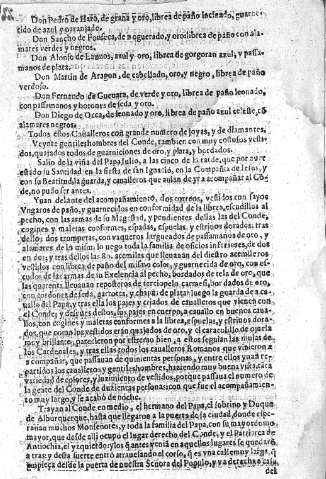 Don Pedro de Haro, de grana y oro, librea de paño
tido de azul y naranjado.
Don Sancho de Fonseca, de noguerado, y oro librea de paño con ala
mares verdes y negros.
Don Alonso de Lamos, azul y oro, librea de gorgoran azul, y passa
manos de plata.
Don Martin de Aragon, de cabellado, oro, y negro, librea de paño
verdoso.
Don Fernando de Gueuara, de verde y oro, librea de paño leonado,
con passamanos y botones de seda y oro.
Don Diego de Occa, de leonado y oro, librea de paño azul celeste, cõ
alamares negros.
Todos estos Caualleros con grande numero de joyas, y de diamantes,
Veynte gentiles hombres del Conde, tambien con muy costosos vesti-
dos, quajados todos de guarniciones de oro, y plata, y bordados.
Salio de la viña del Papa Iulio, a las cinco de la tarde, que por auer
estado su Santidad en la fiesta de san Ignacio, en la Compañia de Iesus, y
con su guarda, y caualleros que auian de yr a acompañar al Cõ
de, no pudo ser antes.
Yuan delante del acompañamiento, dos correos, vestidos con
Vngaros de paño, y guarnecidos en conformidad de la librea, escudillos al
pecho, con las armas de su Magestad, y pendientes dellas las del Conde,
cogines y maletas conformes, espadas, espuelas, y estriuos dorados, tras
dellos dos trompetas, con vaqueros largueados de passamanos de oro, y
alamares de lo mismo luego toda la familia de oficios inferiores, de dos
en dos, y tras dellos las azemilas que lleuauan del diestro azemileros
vestidos con librea de paño del mismo color, y guarnecida de oro, con es-
cudos de las armas de su Excelencia al pecho, bordados de tela de oro, que
las quarenta lleuauan reposteros de terciopelo, carmesi, bordados de oro,
con cordones de seda, garrotes, y chapas de plata: luego la guarda de a ca-
uallo del Papa, y tras ella los pajes y criados de caualleros que vienen con
el Conde, y despues dellos, sus pajes en cuerpo, a cauallo en buenos caua-
llos, con cogines y maletas conformes a la librea, espuelas, y estriuos dora-
dos, que como los vestidos eran quajados de oro, y el caracolillo de ojuela
muy brillante, parecieron por estremo bien, a estos seguian las mulas de
los Cardenales, y tras ellas todos los caualleros Romanos que vinieron a
acompañar, que passauan de quinientas personas, y entre ellos yuan re-
partidos los caualleros y gentiles hombres, haziendo muy buena vista la
variedad de colores, y luzimiento de vestidos, porque passaua el numero de
la gente del Conde de duzientas personas con que fue el acompañamien-
to muy largo, y se acabò de noche.
Trayan al Conde en medio, el hermano del Papa, el sobrino y Duque
de Alborquerque, hasta que llegaron a la puerta de la ciudad, donde espe-
rauan muchos Monseñores, y toda la familia del Papa, con su mayordomo
mayor, que desde alli ocupo el lugar derecho del Conde, y el Patriarca de
Antiochia, el izquierdo, y los q̃ antes venian en aquellos lugares se quedarõ
a tras, y desta suerte entrò atrauessando el corso, q̃ es vna calle muy larga, q̃
empieça desde la puerta de nuestra Señora del Populo, y va derecha a
del